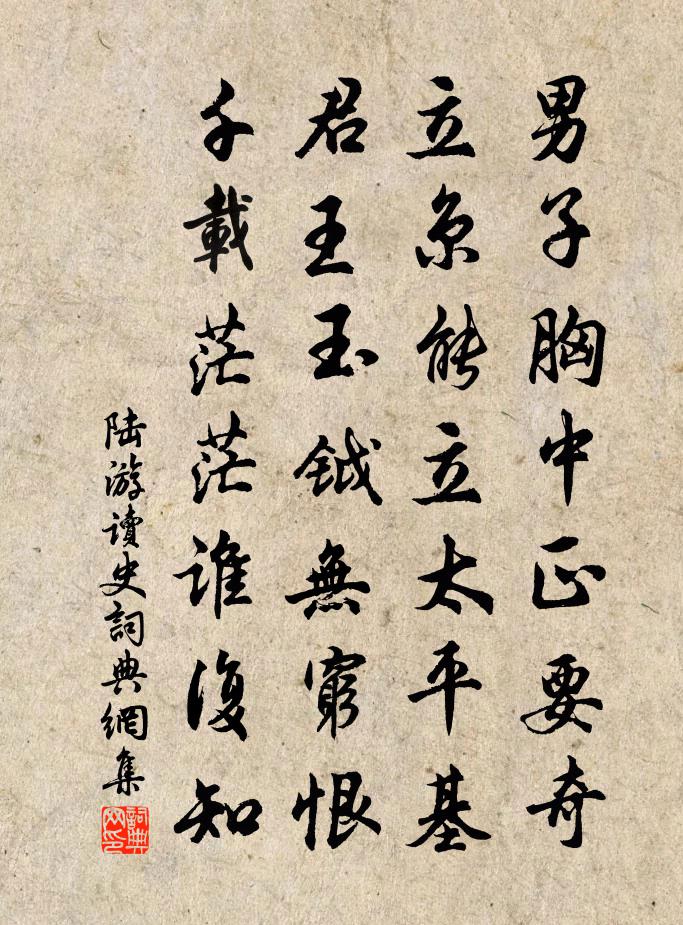 男子胸中正要奇
立京能立太平基
君王玉鉞無窮恨
千載茫茫誰復知
陆游讀史詞典網集
詞典
网印